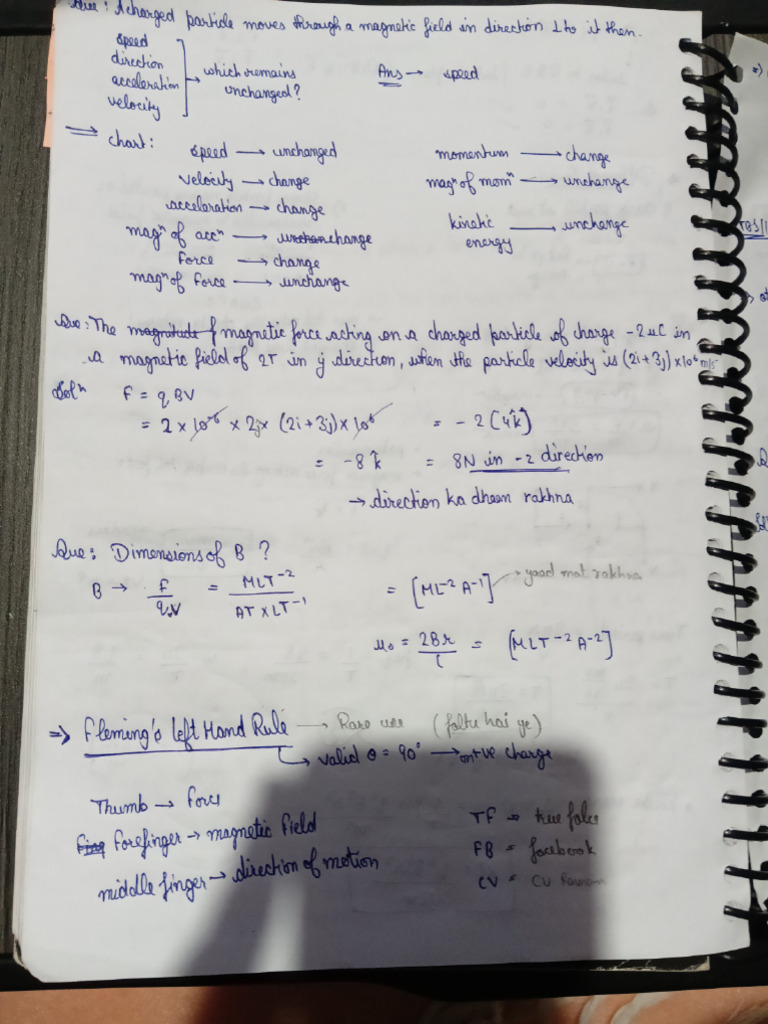 Que: A charged particle moves through a magnetic field in direction ⊥ to it then.
speed
direction
acceleration
velocity
→ which remains unchanged?
Ans → speed
⇒ chart:
speed → unchanged
velocity → change
acceleration → change
magⁿ of accⁿ → unchanchange
force → change
magⁿ of force → unchange
momentum → change
magⁿ of momⁿ → unchange
kinetic energy → unchange
Que: The magnitude of magnetic force acting on a charged particle of charge -2μC in
a magnetic field of 2T in ĵ direction, when the particle velocity is (2i+3j)×10⁶ m/s
Solⁿ F = qBV
= 2×10⁻⁶ × 2j × (2i+3j)×10⁶ = -2(4k̂)
= -8k̂ = 8N in -z direction
→ direction ka dhean rakhna
Que: Dimensions of B ?
B → F/qV = MLT⁻²/AT×LT⁻¹ = [ML⁻²A⁻¹] → yaad mat rakhna
μ₀ = 2Br/l = [MLT⁻²A⁻²]
⇒ Fleming's left Hand Rule → Rare use (faltu hai ye)
→ valid θ = 90° → on +ve charge
Thumb → force
forefinger → magnetic field
middle finger → direction of motion
TF = true
FB = facebook
CV = CV Raman